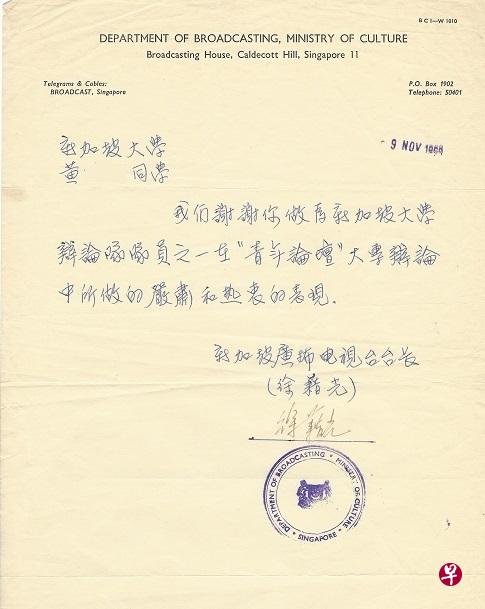 B C I—W 1010
DEPARTMENT OF BROADCASTING, MINISTRY OF CULTURE
Broadcasting House, Caldecott Hill, Singapore 11
Telegrams & Cables:
BROADCAST, Singapore
P.O. Box 1902
Telephone: 50401
新加坡大学
- 9 NOV 1966
黄 同学
我们謝謝你做为新加坡大学
辯論隊隊員之一在"青年論壇"大專辯論
中所做的嚴肅和热衷的表現.
新加坡廣播电視台台长
(徐籍光)
徐籍光
DEPARTMENT OF BROADCASTING • MINISTRY OF CULTURE • SINGAPORE •
早